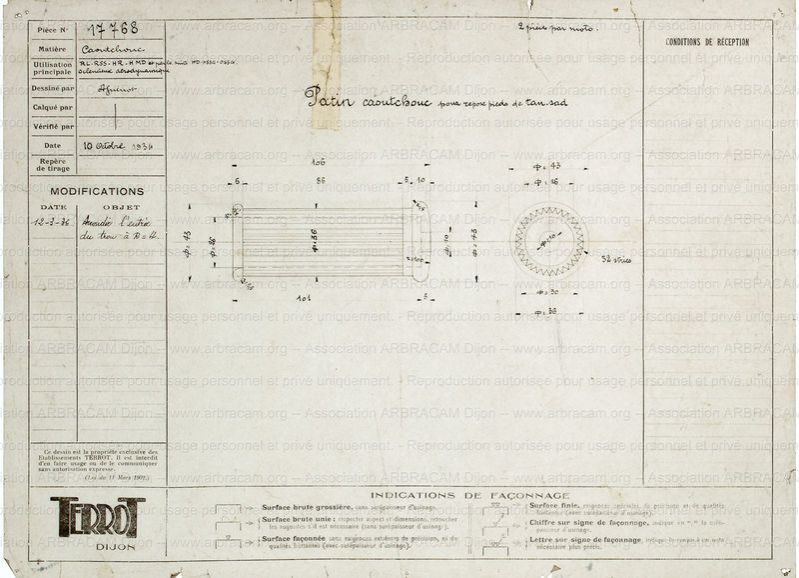 Pièce N° 17768
Matière Caoutchouc
Utilisation principale RL-RSS-HR-HMD
aérodynamique
Dessiné par
Calqué par
Vérifié par
Date 10 Octobre 1934
Repère de tirage
MODIFICATIONS
DATE OBJET
12-3-36 Arrondir l'entrée
du trou à R=2.
Ce dessin est la propriété exclusive des
Etablissements TERROT. Il est interdit
d'en faire usage ou de le communiquer
sans autorisation expresse.
(Loi du 11 Mars 1902.)
TERROT
DIJON
2 pièces par moto.
Patin caoutchouc pour repose pieds de tan-sad
CONDITIONS DE RÉCEPTION
106
6 86 5 10
Φ=43
Φ=36
Φ=43
101
5
Φ=43
Φ=16
32 stries
Φ=30
Φ=36
INDICATIONS DE FAÇONNAGE
Surface brute grossière, sans surépaisseur d'usinage.
Surface brute unie : respecter aspect et dimensions, retoucher
les rugosités s'il est nécessaire (sans surépaisseur d'usinage).
Surface façonnée sans exigences extrêmes de précision, ni de
qualités flottantes (avec surépaisseur d'usinage).
Surface finie, exigences spéciales de précision et de qualités
flottantes (avec surépaisseur d'usinage).
Chiffre sur signe de façonnage,
Lettre sur signe de façonnage,
nécessaire plus précis.
www.arbracam.org -- Association ARBRACAM Dijon
Reproduction autorisée pour usage personnel et privé uniquement.